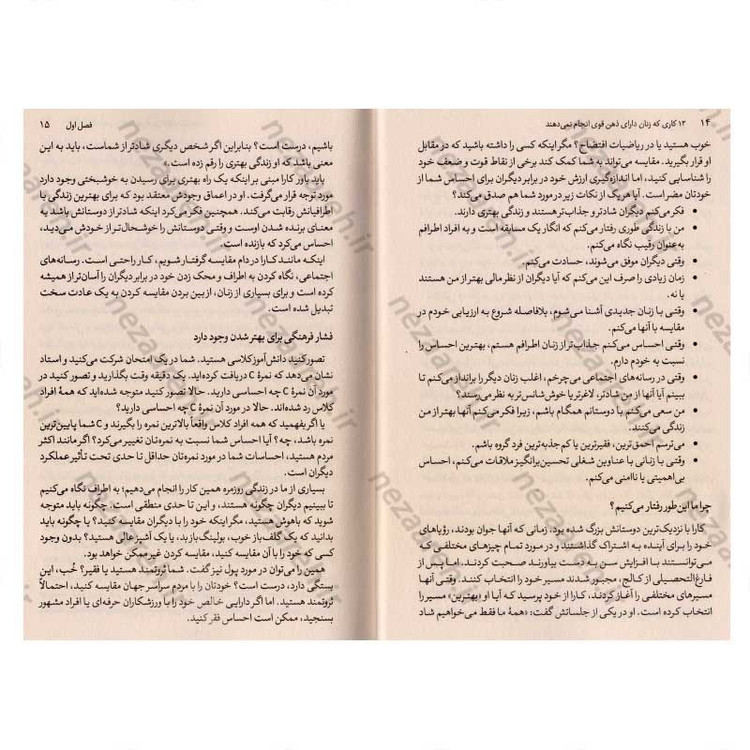 ۱۴ ۱۳ کاری که زنان دارای ذهن قوی انجام نمی‌دهند
خوب هستید یا در ریاضیات افتضاح؟ مگر اینکه کسی را داشته باشید که در مقابل
او قرار بگیرید. مقایسه می‌تواند به شما کمک کند برخی از نقاط قوت و ضعف خود
را شناسایی کنید، اما اندازه‌گیری ارزش خود در برابر دیگران برای احساس شما از
خودتان مضر است. آیا هر یک از نکات زیر در مورد شما هم صدق می‌کند؟
• فکر می‌کنم دیگران شادتر و جذاب‌تر هستند و زندگی بهتری دارند.
• من با زندگی طوری رفتار می‌کنم که انگار یک مسابقه است و به افراد اطرافم
به‌عنوان رقیب نگاه می‌کنم.
• وقتی دیگران موفق می‌شوند، حسادت می‌کنم.
• زمان زیادی را صرف این می‌کنم که آیا دیگران از نظر مالی بهتر از من هستند
یا نه.
• وقتی با زنان جدیدی آشنا می‌شوم، بلافاصله شروع به ارزیابی خودم در
مقایسه با آنها می‌کنم.
• وقتی احساس می‌کنم جذاب‌تر از زنان اطرافم هستم، بهترین احساس را
نسبت به خودم دارم.
• وقتی در رسانه‌های اجتماعی می‌چرخم، اغلب زنان دیگر را برانداز می‌کنم تا
ببینم آیا آنها از من شادتر، لاغرتر یا خوش‌شانس‌تر به نظر می‌رسند؟
• من سعی می‌کنم با دوستانم همگام باشم، زیرا فکر می‌کنم آنها بهتر از من
زندگی می‌کنند.
• می‌ترسم احمق‌ترین، فقیرترین یا کم‌جذبه‌ترین فرد گروه باشم.
• وقتی با زنانی با عناوین شغلی تحسین‌برانگیز ملاقات می‌کنم، احساس
بی‌اهمیتی یا ناامنی می‌کنم.
چرا ما این‌طور رفتار می‌کنیم؟
کارا با نزدیک‌ترین دوستانش بزرگ شده بود. زمانی که آنها جوان بودند، رؤیاهای
خود را برای آینده به اشتراک گذاشتند و در مورد تمام چیزهای مختلفی که
می‌توانستند با افزایش سن به دست بیاورند صحبت کردند. اما پس از
فارغ‌التحصیلی از کالج، مجبور شدند مسیر خود را انتخاب کنند. وقتی آنها
مسیرهای مختلفی را آغاز کردند، کارا از خود پرسید که آیا او «بهترین» مسیر را
انتخاب کرده است. او در یکی از جلساتش گفت: «همهٔ ما فقط می‌خواهیم شاد
فصل اول ۱۵
باشیم، درست است؟ بنابراین اگر شخص دیگری شادتر از شماست، باید به این
معنی باشد که او زندگی بهتری را رقم زده است.»
باید باور کارا مبنی بر اینکه یک راه بهتری برای رسیدن به خوشبختی وجود دارد
مورد توجه قرار می‌گرفت. او در اعماق وجودش معتقد بود که برای بهترین زندگی با
اطرافیانش رقابت می‌کند. همچنین فکر می‌کرد اینکه شادتر از دوستانش باشد به
معنای برنده شدن اوست و وقتی دوستانش را خوشحال‌تر از خودش می‌دید،
احساس می‌کرد که بازنده است.
اینکه مانند کارا در دام مقایسه گرفتار شویم، کار راحتی است. رسانه‌های
اجتماعی، نگاه کردن به اطراف و محک زدن خود در برابر دیگران را آسان‌تر از همیشه
کرده است و برای بسیاری از زنان، از بین بردن مقایسه کردن به یک عادت سخت
تبدیل شده است.
فشار فرهنگی برای بهتر شدن وجود دارد
تصور کنید دانش‌آموز کلاسی هستید. شما در یک امتحان شرکت می‌کنید و استاد
نشان می‌دهد که نمرهٔ C دریافت کرده‌اید. یک دقیقه وقت بگذارید و تصور کنید در
مورد آن نمرهٔ C چه احساسی دارید. حالا تصور کنید متوجه شده‌اید که همهٔ افراد
کلاس رد شده‌اند. حالا در مورد آن نمرهٔ C چه احساسی دارید؟
یا اگر بفهمید که همه افراد کلاس واقعاً بالاترین نمره را بگیرند و C شما پایین‌ترین
نمره باشد، چه؟ آیا احساس شما نسبت به نمره‌تان تغییر می‌کرد؟ اگر مانند اکثر
مردم هستید، احساسات شما در مورد نمره‌تان حداقل تا حدی تحت تأثیر عملکرد
دیگران است.
بسیاری از ما در زندگی روزمره همین کار را انجام می‌دهیم؛ به اطراف نگاه می‌کنیم
تا ببینیم دیگران چگونه هستند، و این تا حدی منطقی است. چگونه باید متوجه
شوید که باهوش هستید، مگر اینکه خود را با دیگران مقایسه کنید؟ یا چگونه باید
بدانید که یک گلف‌باز خوب، بولینگ‌باز بد، یا یک آشپز عالی هستید؟ بدون وجود
کسی که خود را با آن مقایسه کنید، مقایسه کردن غیرممکن خواهد بود.
همین را می‌توان در مورد پول نیز گفت. شما ثروتمند هستید یا فقیر؟ خُب، این
بستگی دارد، درست است؟ خودتان را با مردم سراسر جهان مقایسه کنید، احتمالاً
ثروتمند هستید. اما اگر دارایی خالص خود را با ورزشکاران حرفه‌ای یا افراد مشهور
بسنجید، ممکن است احساس فقر کنید.
nezaameh.ir